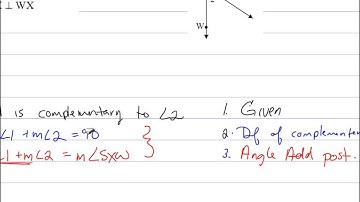 ⊥ WX
W
is complementary to ∠2
1. Given
∠1 + m∠2 = 90
2. Df of complementar
∠1 + m∠2 = m∠SXW
3. Angle Add post.